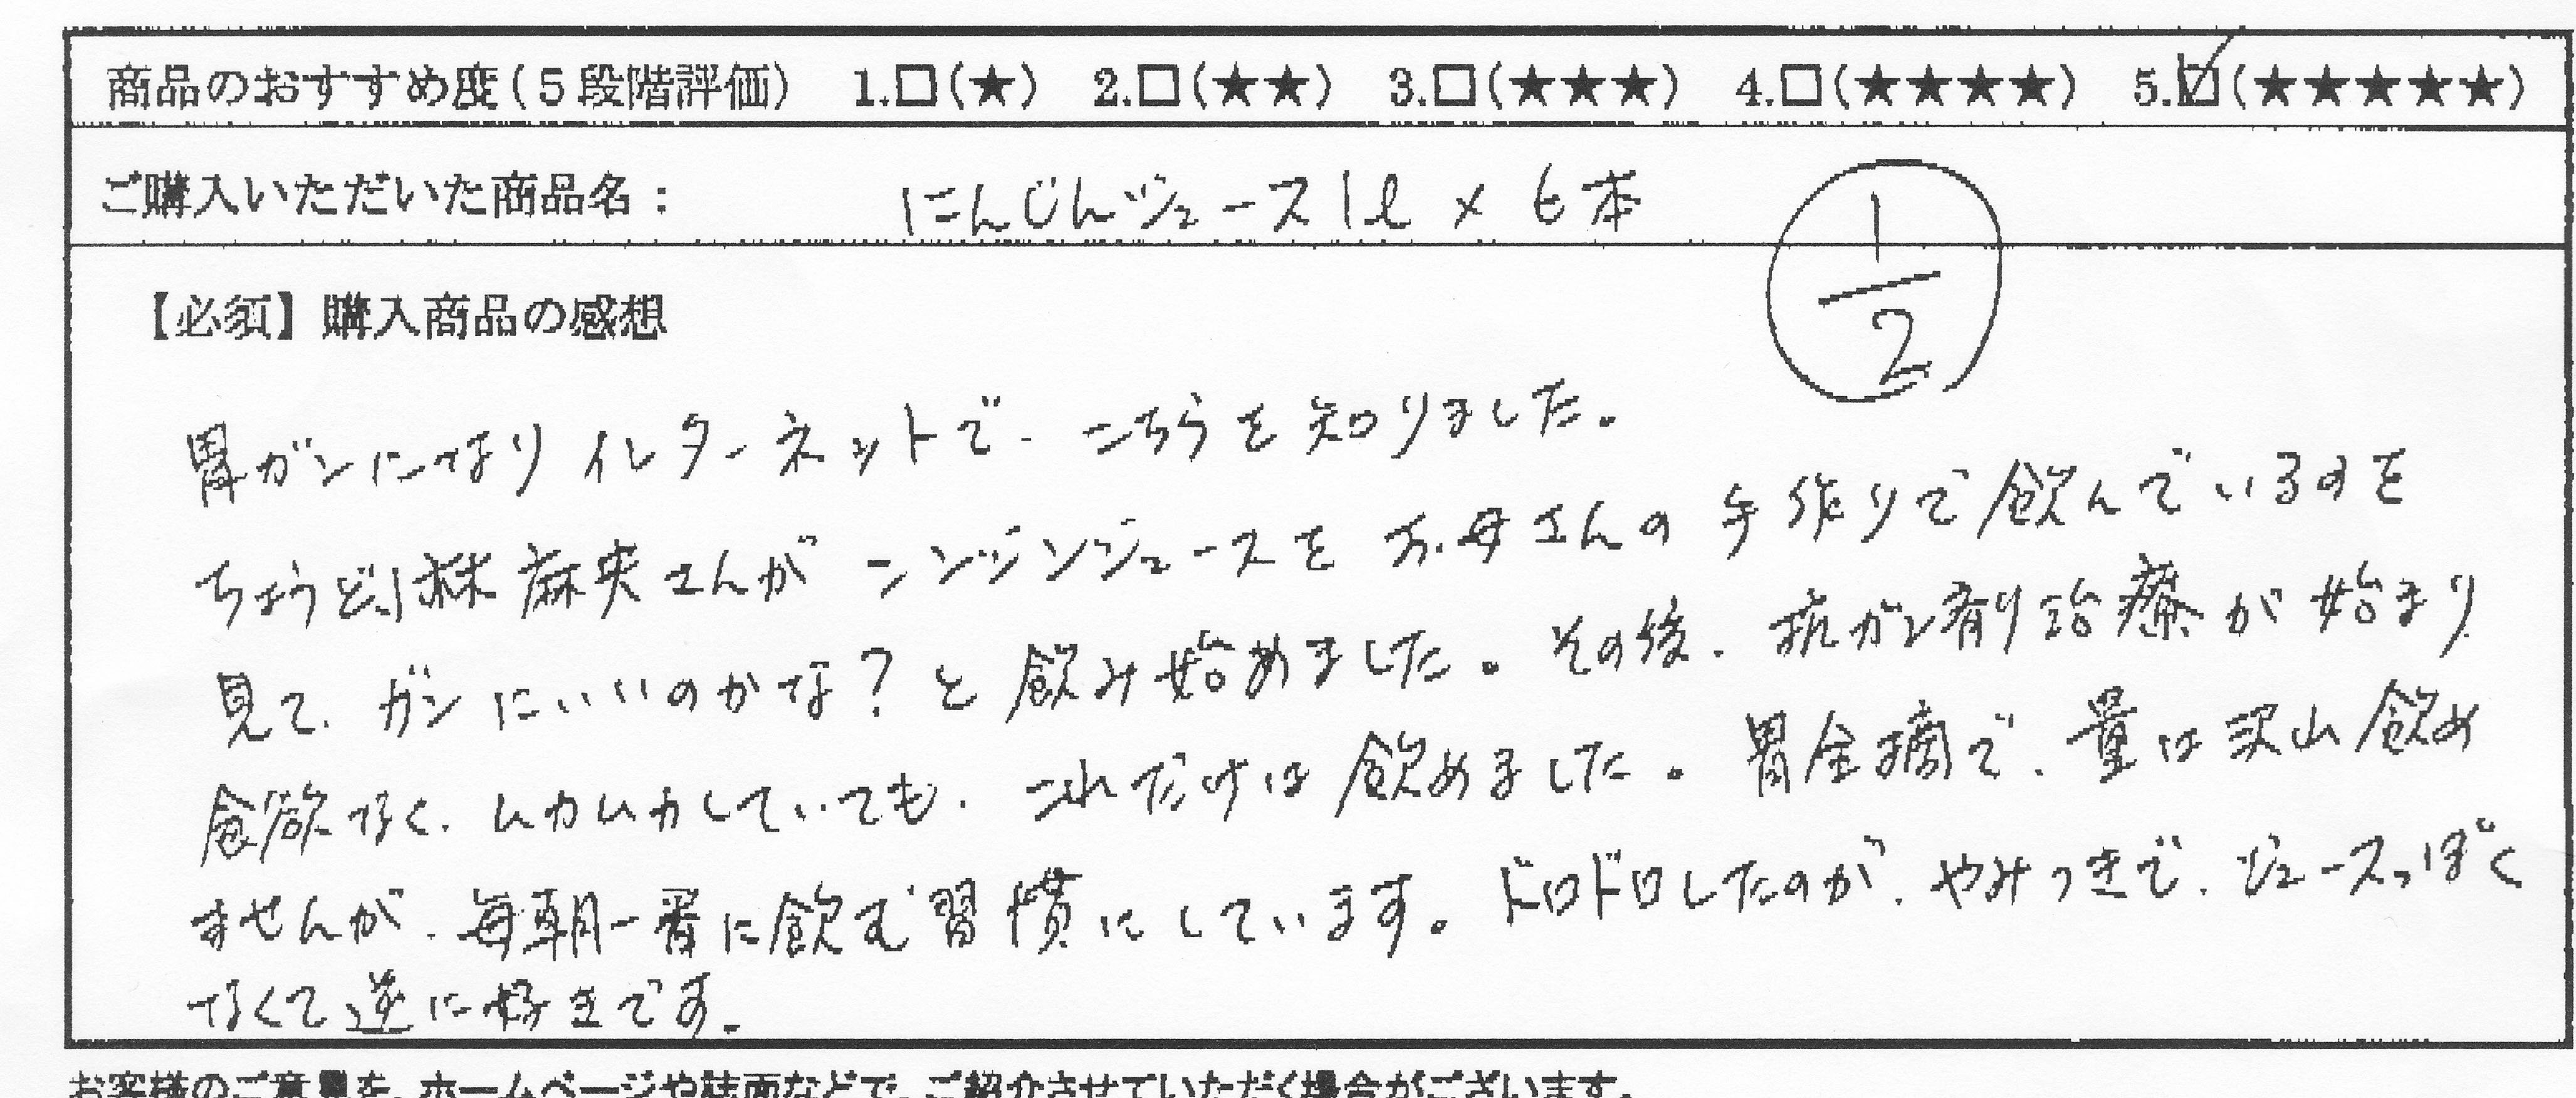 商品のおすすめ度(５段階評価) 1.□(★) 2.□(★★) 3.□(★★★) 4.□(★★★★) 5.☑(★★★★★)
ご購入いただいた商品名： にんじんジュース1ℓ × 6本
1/2
【必須】購入商品の感想
胃ガンになりインターネットで、こちらを知りました。
ちょうど、小林麻央さんがニンジンジュースをお母さんの手作りで飲んでいるのを
見て、ガンにいいのかな？と飲み始めました。その後、抗ガン剤治療が始まり
食欲なく、ムカムカしていても、これだけは飲めました。胃全摘で、量は沢山飲め
ませんが、毎朝一番に飲む習慣にしています。ドロドロしたのが、やみつきで、ジュースっぽく
なくて逆に好きです。
お客様のご意見を、ホームページや誌面などで、ご紹介させていただく場合がございます。